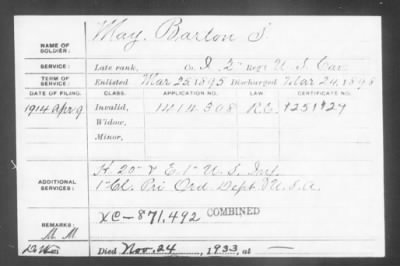 May, Barton S.
NAME OF SOLDIER:
SERVICE: Late rank, Co. I 2" Reg't U S Cav.
TERM OF SERVICE: Enlisted Mar 25, 1895 Discharged Mar 24, 1898
DATE OF FILING. CLASS. APPLICATION NO. LAW. CERTIFICATE NO.
1914 Apr 9 Invalid, 1414 308 R.E. 1251127
Widow,
Minor,
ADDITIONAL SERVICES: H 20" & E 1" U.S. Inf.
1" Cl. Pri Ord. Dept. U.S.A.
XC-871,492 COMBINED
REMARKS:
M M
Died Nov. 24, 1933, at —